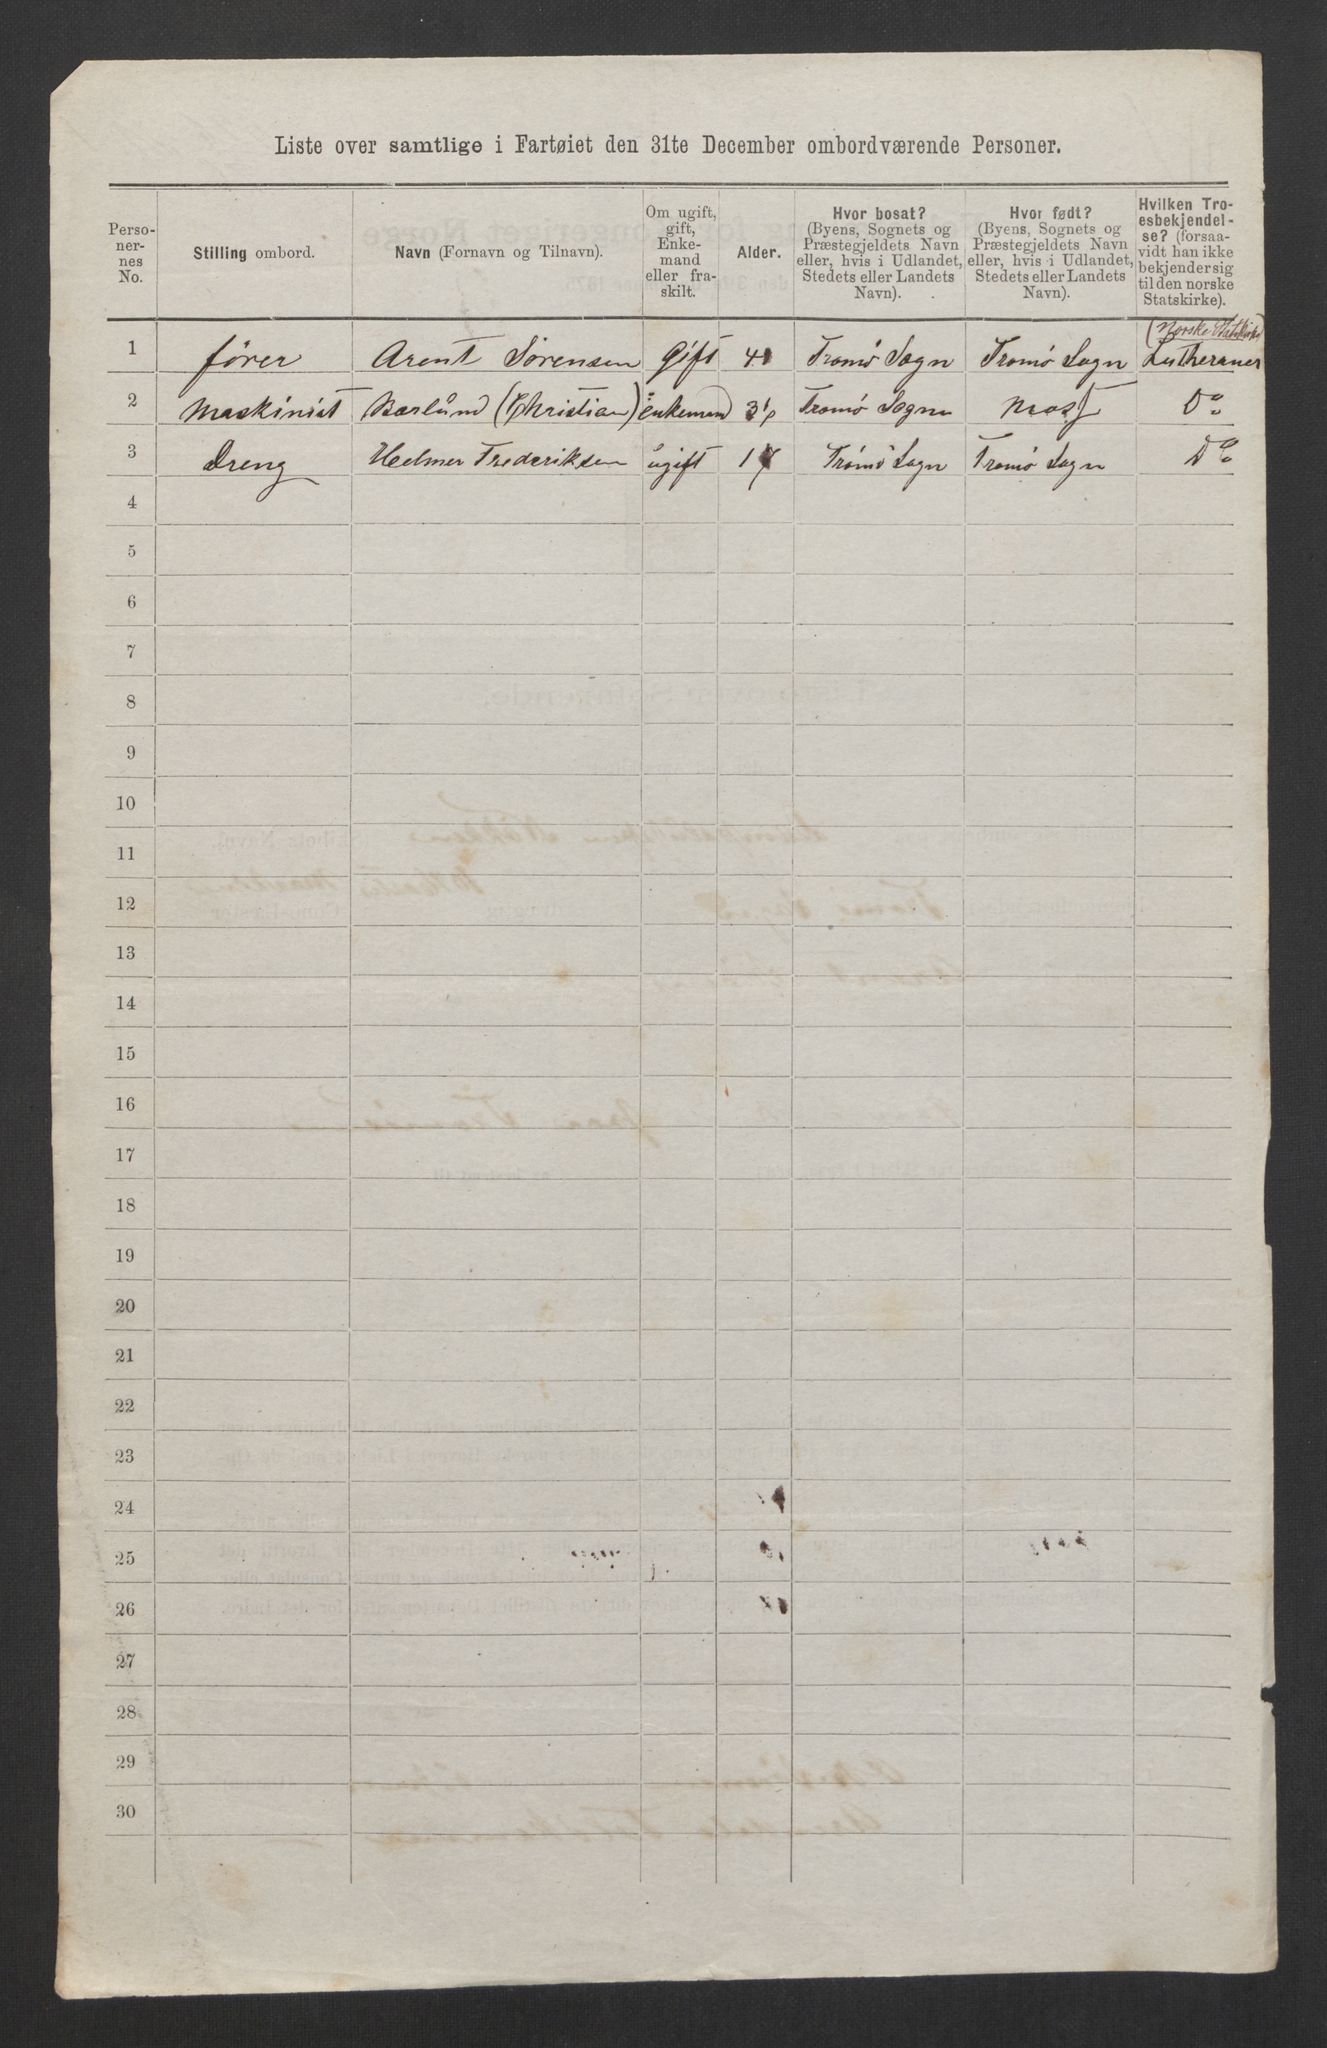 Liste over samtlige i Fartøiet den 31te December ombordværende Personer.
Perso-
ner-
nes
No.
Stilling ombord.
Navn (Fornavn og Tilnavn).
Om ugift,
gift,
Enke-
mand
eller fra-
skilt.
Alder.
Hvor bosat?
(Byens, Sognets og
Præstegjeldets Navn
eller, hvis i Udlandet,
Stedets eller Landets
Navn).
Hvor født?
(Byens, Sognets og
Præstegjeldets Navn
eller, hvis i Udlandet,
Stedets eller Landets
Navn).
Hvilken Tro-
esbekjendel-
se? (forsaa-
vidt han ikke
bekjender sig
til den norske
Statskirke).
(Norske Statskirke)
1 fører Arent Sørensen Gift 41 Tromø Sogn Tromø Sogn Lutheraner
2 Maskinist Barlund (Christian) enkemand Tromø Sogn Do
3 Dreng Helmer Frederiksen ugift 17 Tromø Sogn Tromø Sogn Do
4
5
6
7
8
9
10
11
12
13
14
15
16
17
18
19
20
21
22
23
24
25
26
27
28
29
30